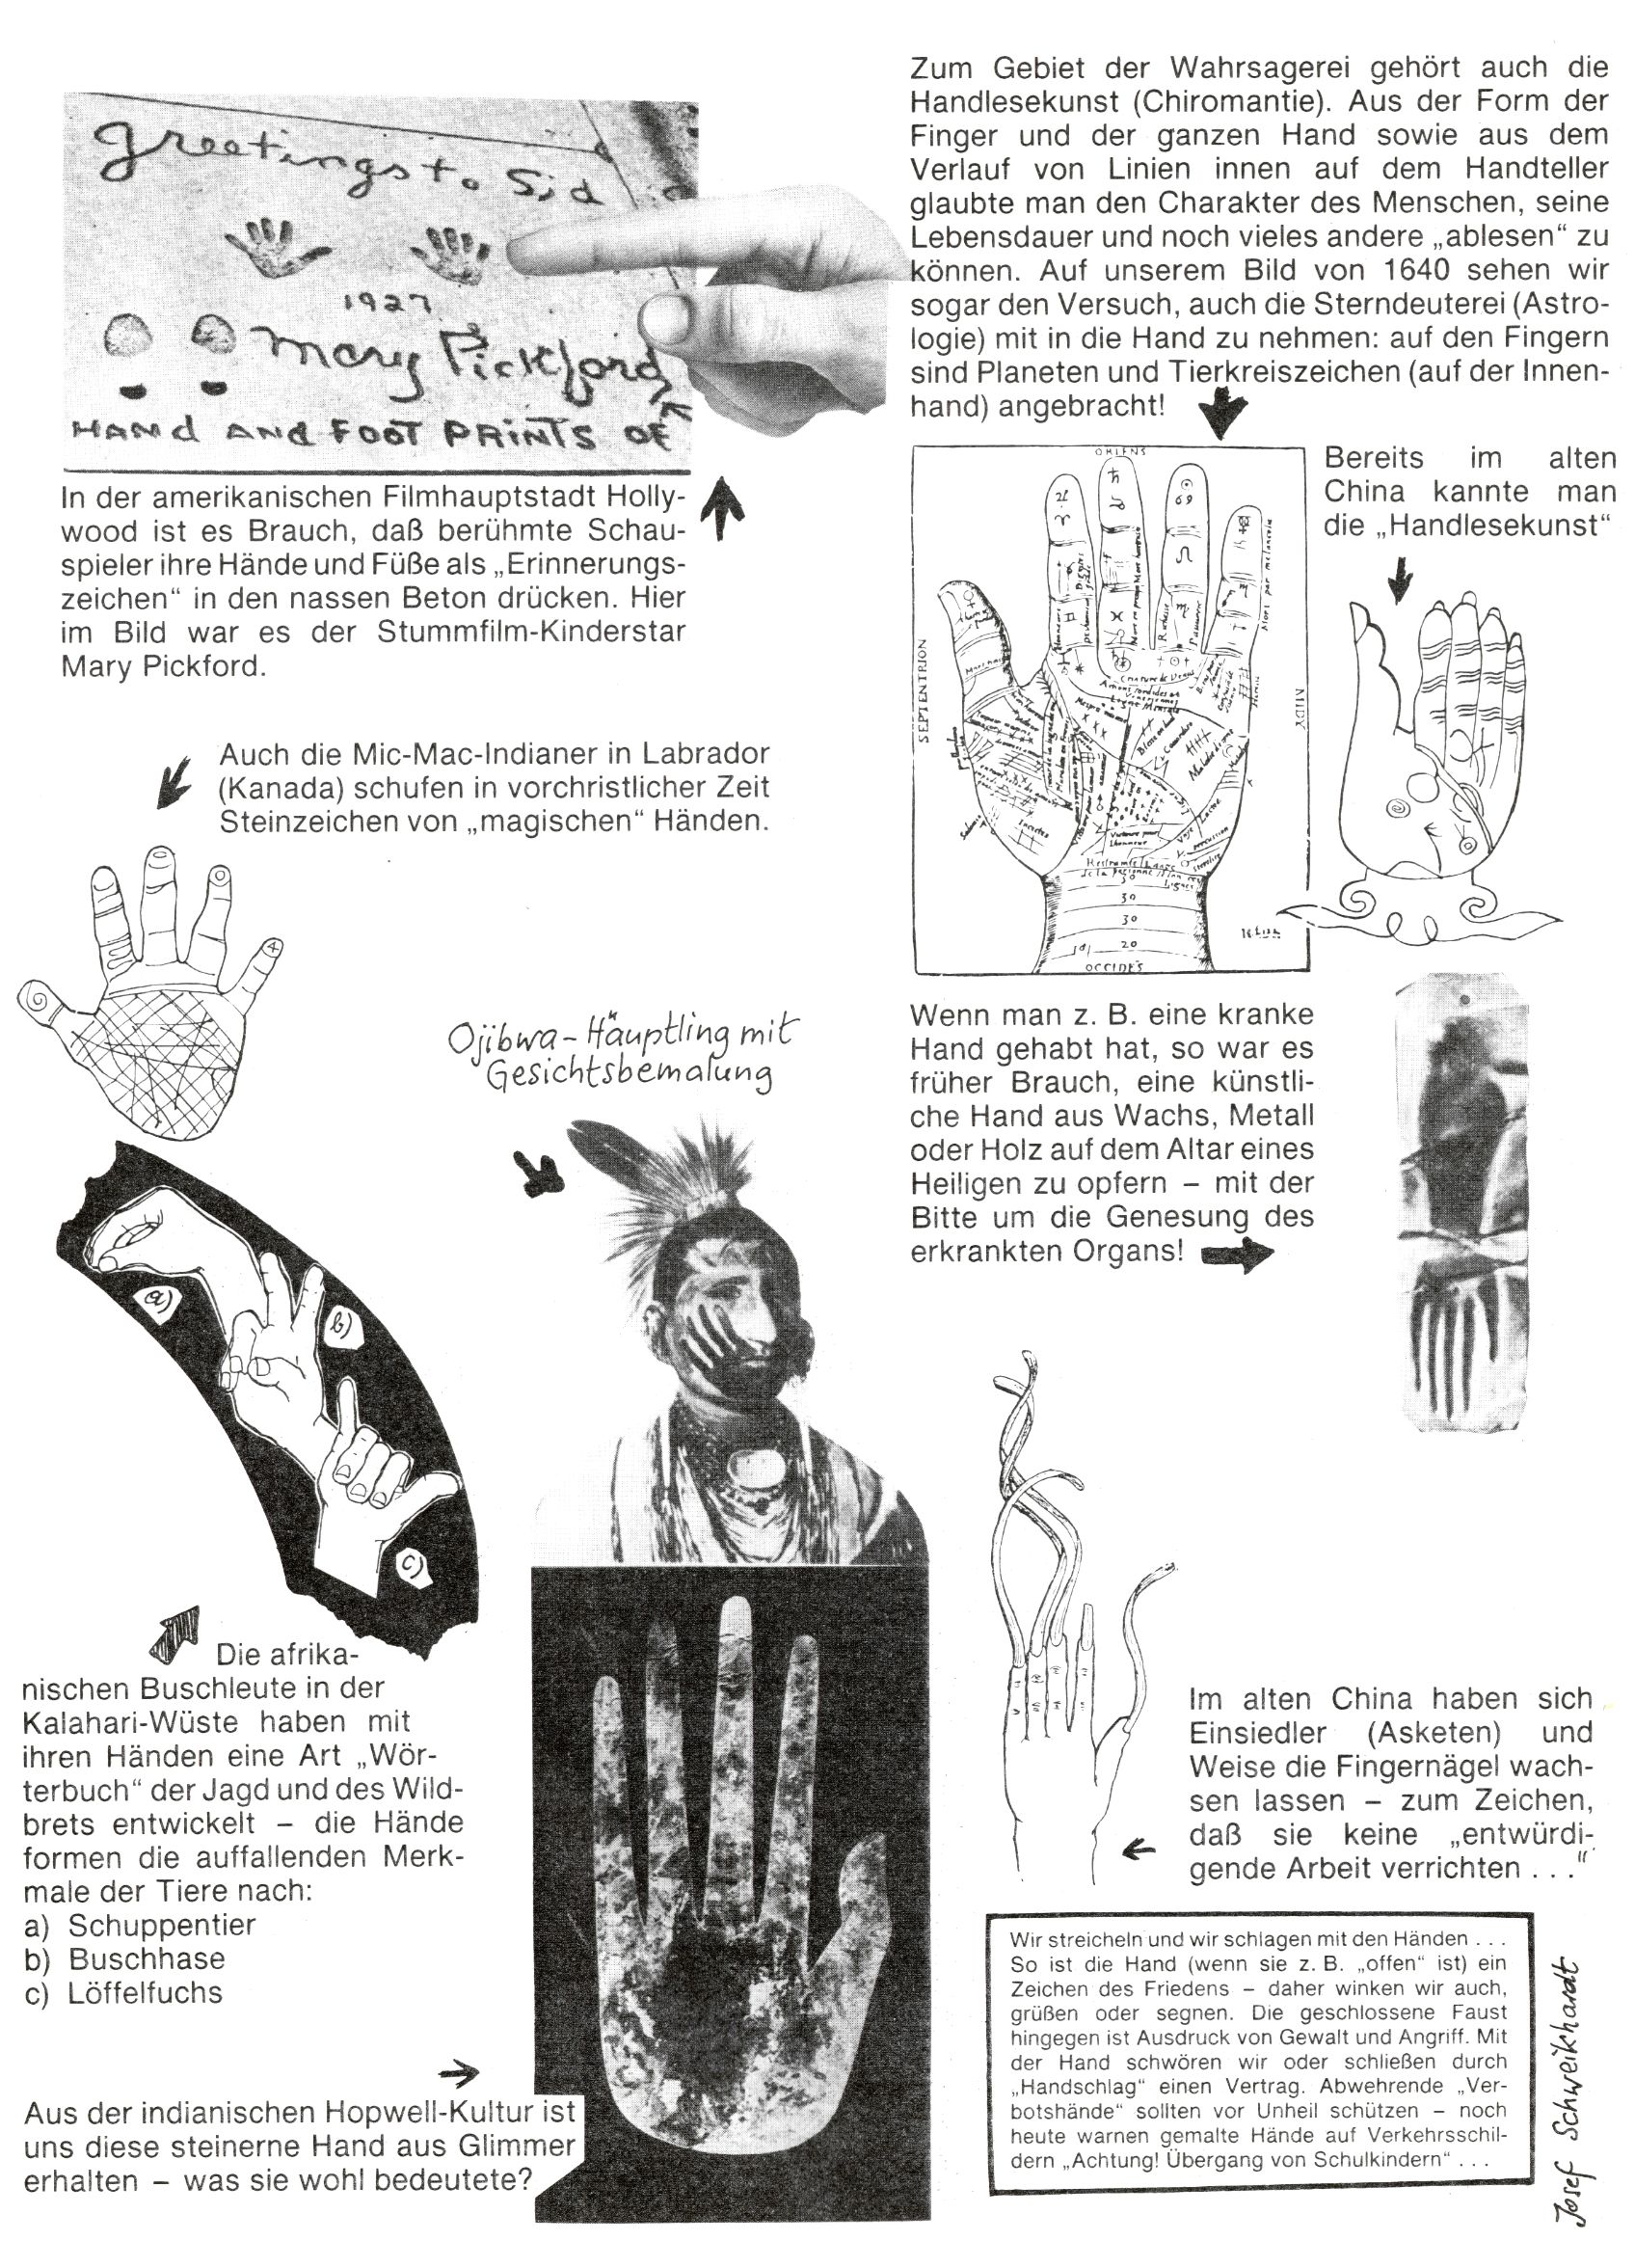 Greetings to Sid
1927
Mary Pickford
HAND AND FOOT PRINTS OF
In der amerikanischen Filmhauptstadt Holly-
wood ist es Brauch, daß berühmte Schau-
spieler ihre Hände und Füße als „Erinnerungs-
zeichen“ in den nassen Beton drücken. Hier
im Bild war es der Stummfilm-Kinderstar
Mary Pickford.
Zum Gebiet der Wahrsagerei gehört auch die
Handlesekunst (Chiromantie). Aus der Form der
Finger und der ganzen Hand sowie aus dem
Verlauf von Linien innen auf dem Handteller
glaubte man den Charakter des Menschen, seine
Lebensdauer und noch vieles andere „ablesen“ zu
können. Auf unserem Bild von 1640 sehen wir
sogar den Versuch, auch die Sterndeuterei (Astro-
logie) mit in die Hand zu nehmen: auf den Fingern
sind Planeten und Tierkreiszeichen (auf der Innen-
hand) angebracht!
SEPTENTRION
MIDY
30
30
30
20
OCCIDES
Bereits im alten
China kannte man
die „Handlesekunst“
Auch die Mic-Mac-Indianer in Labrador
(Kanada) schufen in vorchristlicher Zeit
Steinzeichen von „magischen“ Händen.
Ojibwa-Häuptling mit
Gesichtsbemalung
Wenn man z. B. eine kranke
Hand gehabt hat, so war es
früher Brauch, eine künstli-
che Hand aus Wachs, Metall
oder Holz auf dem Altar eines
Heiligen zu opfern – mit der
Bitte um die Genesung des
erkrankten Organs!
a)
b)
c)
Die afrika-
nischen Buschleute in der
Kalahari-Wüste haben mit
ihren Händen eine Art „Wör-
terbuch“ der Jagd und des Wild-
brets entwickelt – die Hände
formen die auffallenden Merk-
male der Tiere nach:
a) Schuppentier
b) Buschhase
c) Löffelfuchs
Aus der indianischen Hopwell-Kultur ist
uns diese steinerne Hand aus Glimmer
erhalten – was sie wohl bedeutete?
Im alten China haben sich
Einsiedler (Asketen) und
Weise die Fingernägel wach-
sen lassen – zum Zeichen,
daß sie keine „entwürdi-
gende Arbeit verrichten . . .“
Wir streicheln und wir schlagen mit den Händen . . .
So ist die Hand (wenn sie z. B. „offen“ ist) ein
Zeichen des Friedens – daher winken wir auch,
grüßen oder segnen. Die geschlossene Faust
hingegen ist Ausdruck von Gewalt und Angriff. Mit
der Hand schwören wir oder schließen durch
„Handschlag“ einen Vertrag. Abwehrende „Ver-
botshände“ sollten vor Unheil schützen – noch
heute warnen gemalte Hände auf Verkehrsschil-
dern „Achtung! Übergang von Schulkindern“ . . .
Josef Schweikhardt